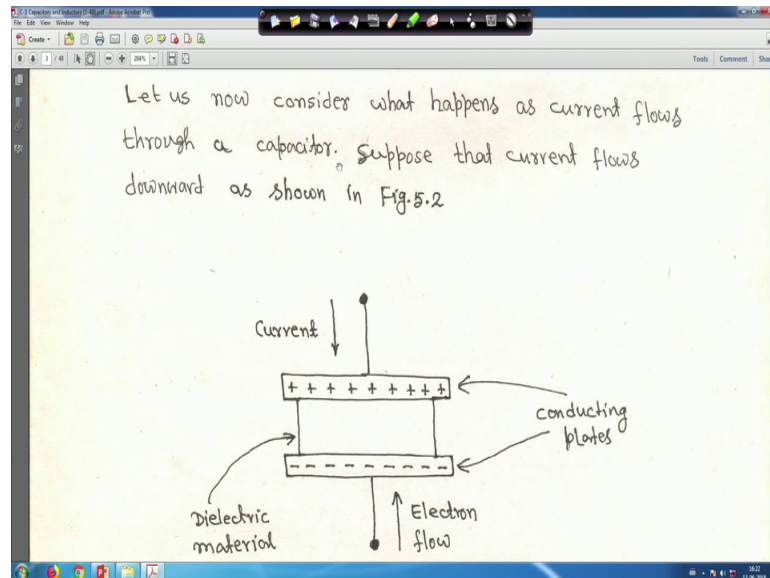 C-5 Capacitors and Inductors (1-48).pdf - Adobe Acrobat Pro
File Edit View Window Help
Create
3 / 48
204%
Tools Comment
Let us now consider what happens as current flows
through a capacitor. Suppose that current flows
downward as shown in Fig.5.2
Current
+ + + + + + + + +
conducting
plates
- - - - - - - - -
Dielectric
material
Electron
flow
16:22